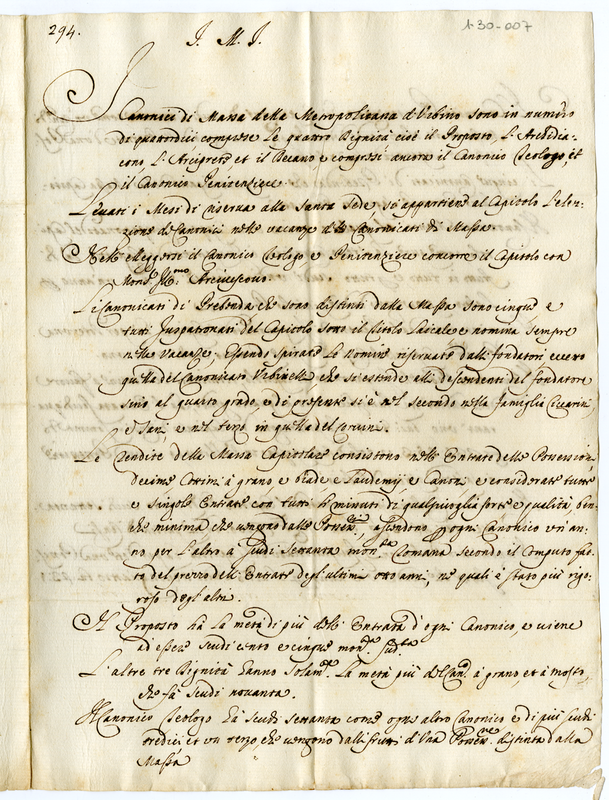 294.
J. M. J.
1-30-007
I Canonici di Massa della Metropolitana d'Urbino sono in numero
di quattordici comprese le quattro Dignità cioè il Proposto, L'Archidia-
cono, L'Arciprete et il Decano e compresi ancora il Canonico Teologo, et
il Canonico Penitenziere
Levati i Mesi di riserva alla Santa Sede, si appartiene al Capitolo l'ele-
zione de Canonici nelle vacanze de Canonicati di Massa.
Nell' Eleggersi il Canonico Teologo, e Penitenziere concorre il Capitolo con
Mons.r Ill.mo Arcivescovo.
Li Canonicati di Prebenda che sono distinti dalla Massa sono cinque e
tutti Juspatronati del Capitolo sono il titolo Laicale e nomina sempre
nelle Vacanze; Essendo spirate le nomine riservate dalli fondatori eccetto
quella del Canonicato Urbinelli che si estende alli descendenti del fondatore
sino al quarto grado, e di presente si è nel secondo nella famiglia
e nel terzo in quella del
Le Rendite della Massa Capitolare consistono nelle Entrate delle Possessioni,
decime Cottimi à grano e biade e Laudemij e Canoni e considerate tutte
e singole Entrate con tutti li minuti di qualsivoglia sorte e qualità, ben-
che minima che vengono dalle ascendono ogni Canonico un an-
no per l'altro a scudi settanta mon.ta Romana secondo il Computo fat-
to del prezzo dell' Entrate degl'ultimi otto anni, ne quali è stato più rigo-
roso degl'altri.
Il Proposto hà la metà di più dell' Entrata d'ogni Canonico, e viene
ad essere scudi cento e cinque mon.ta sud.ta
L'altre tre Dignità hanno solam.te la metà più à grano, et à mosto
che fà scudi novanta.
Il Canonico Teologo hà scudi settanta come ogni altro Canonico e di più scudi
tredici et un terzo che vengono dalli frutti d'una distinta dalla
Massa